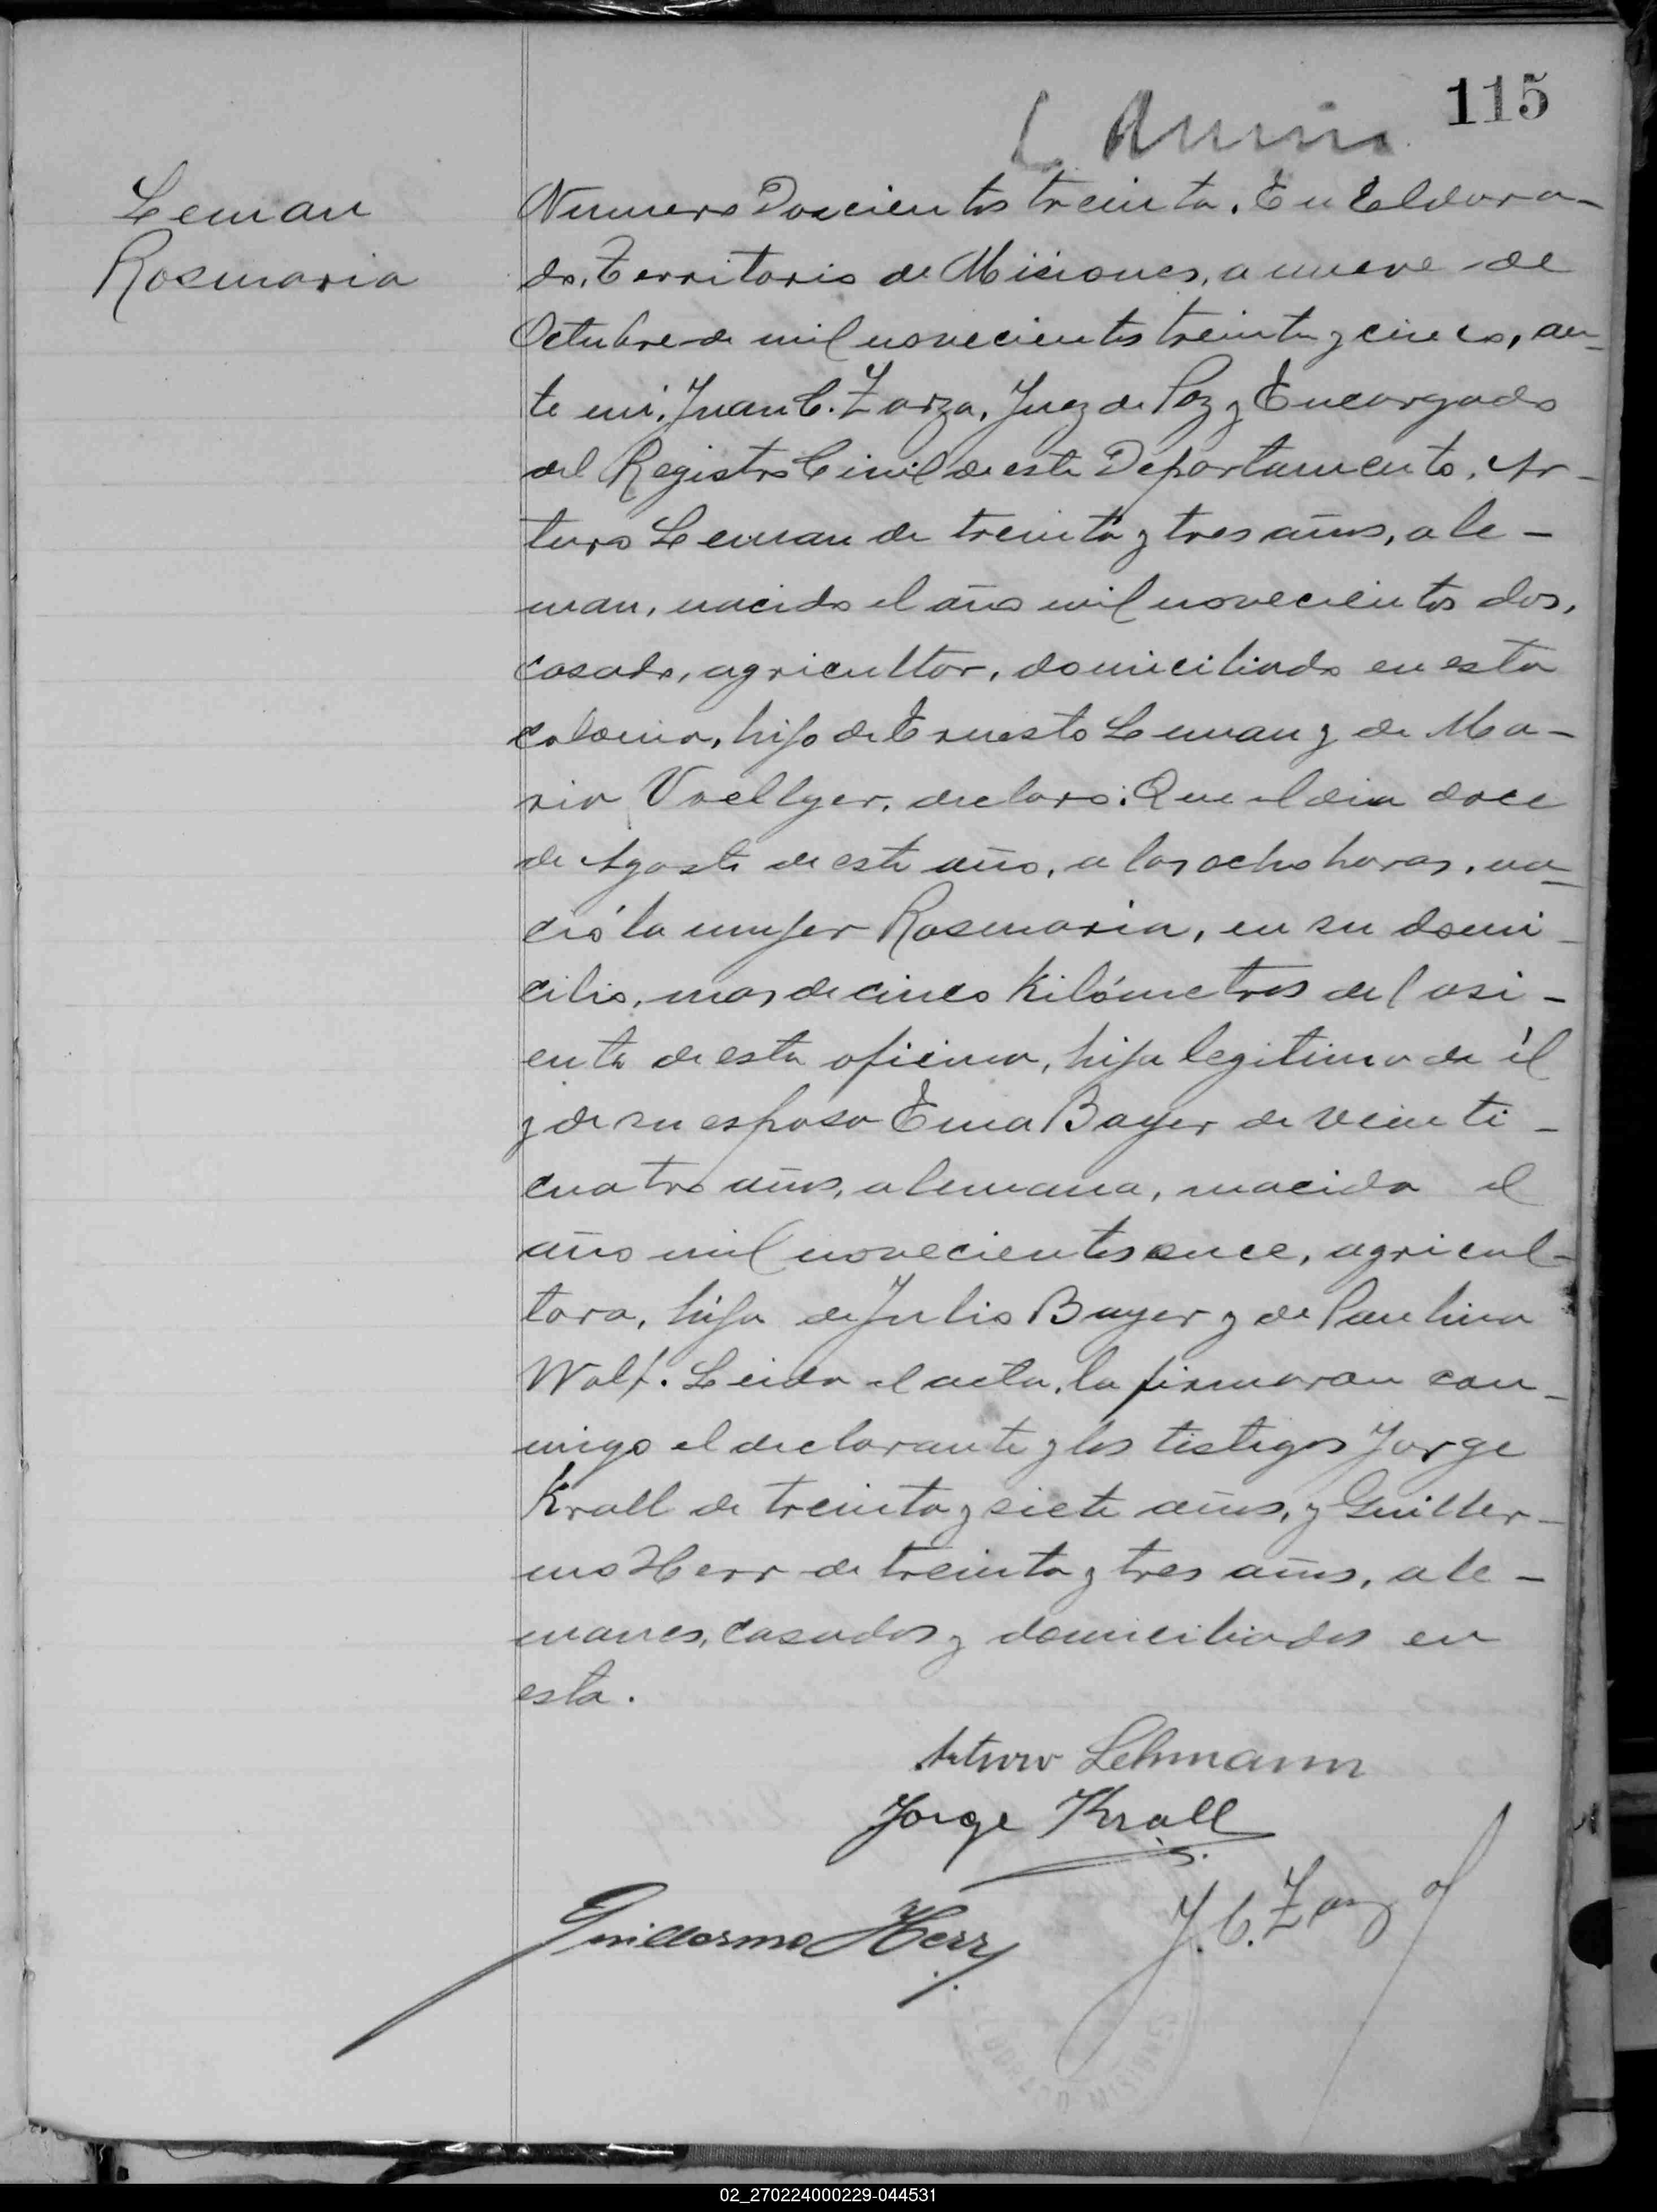 115
Leman
Rosmaria
Numero Doscientos treinta. En Eldora-
do, Territorio de Misiones, a nueve de
Octubre de mil novecientos treinta y cinco, an-
te mi, Juan C. Zarza, Juez de Paz y Encargado
del Registro Civil de este Departamento, Ar-
turo Leman de treinta y tres años, ale-
man, nacido el año mil novecientos dos,
casado, agricultor, domiciliado en esta
colonia, hijo de Ernesto Leman y de Ma-
ria declaro: Que el dia doce
de Agosto de este año, a las ocho horas, na-
ció la mujer Rosmaria, en su domi-
cilio, mas de cinco kilómetros del asi-
ento de esta oficina, hija legitima de él
y de su esposa Ema Bayer de veinti-
cuatro años, alemana, nacida el
año mil novecientos once, agricul-
tora, hija de Julio Bayer y de Paulina
Wolf. Leida el acta, la firmaron con-
migo el declarante y los testigos Jorge
Krall de treinta y siete años, y Guiller-
mo Herr de treinta y tres años, ale-
manes, casados y domiciliados en
esta.
Arturo Lehmann
Jorge Krall
Guillermo Herr
J. C. Zarza
MISIONES
02_270224000229-044531